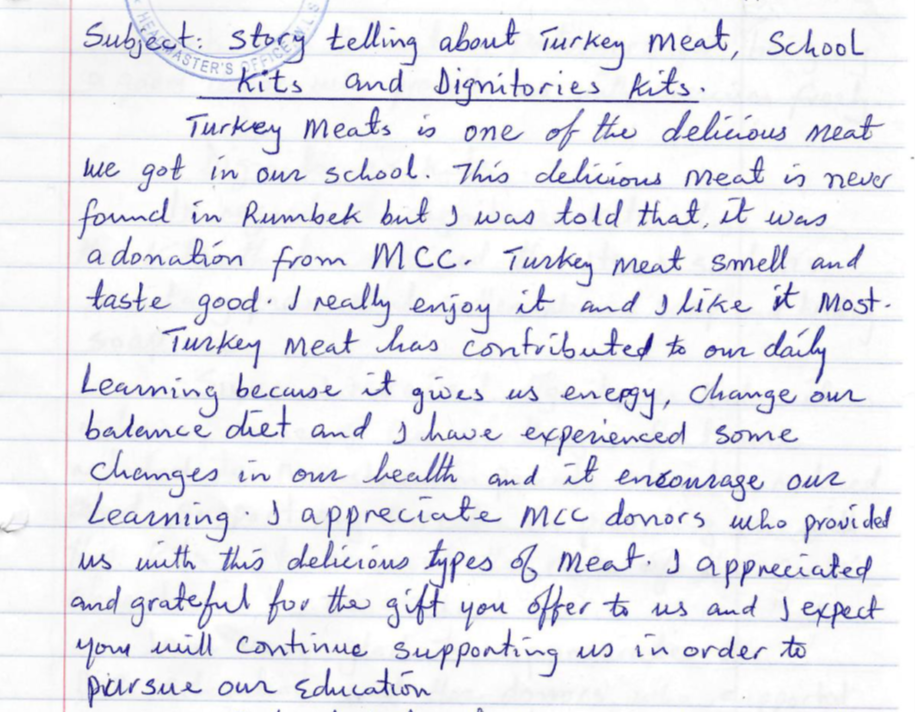 HEADMASTER'S OFFICE
Subject: Story telling about Turkey meat, School
Kits and Dignitories kits.
Turkey Meats is one of the delicious meat
we got in our school. This delicious meat is never
found in Rumbek but I was told that, it was
a donation from MCC. Turkey meat smell and
taste good. I really enjoy it and I like it Most.
Turkey meat has contributed to our daily
Learning because it gives us energy, change our
balance diet and I have experienced some
changes in our health and it encourage our
Learning. I appreciate MCC donors who provided
us with this delicious types of meat. I appreciated
and grateful for the gift you offer to us and I expect
you will continue supporting us in order to
pursue our Education